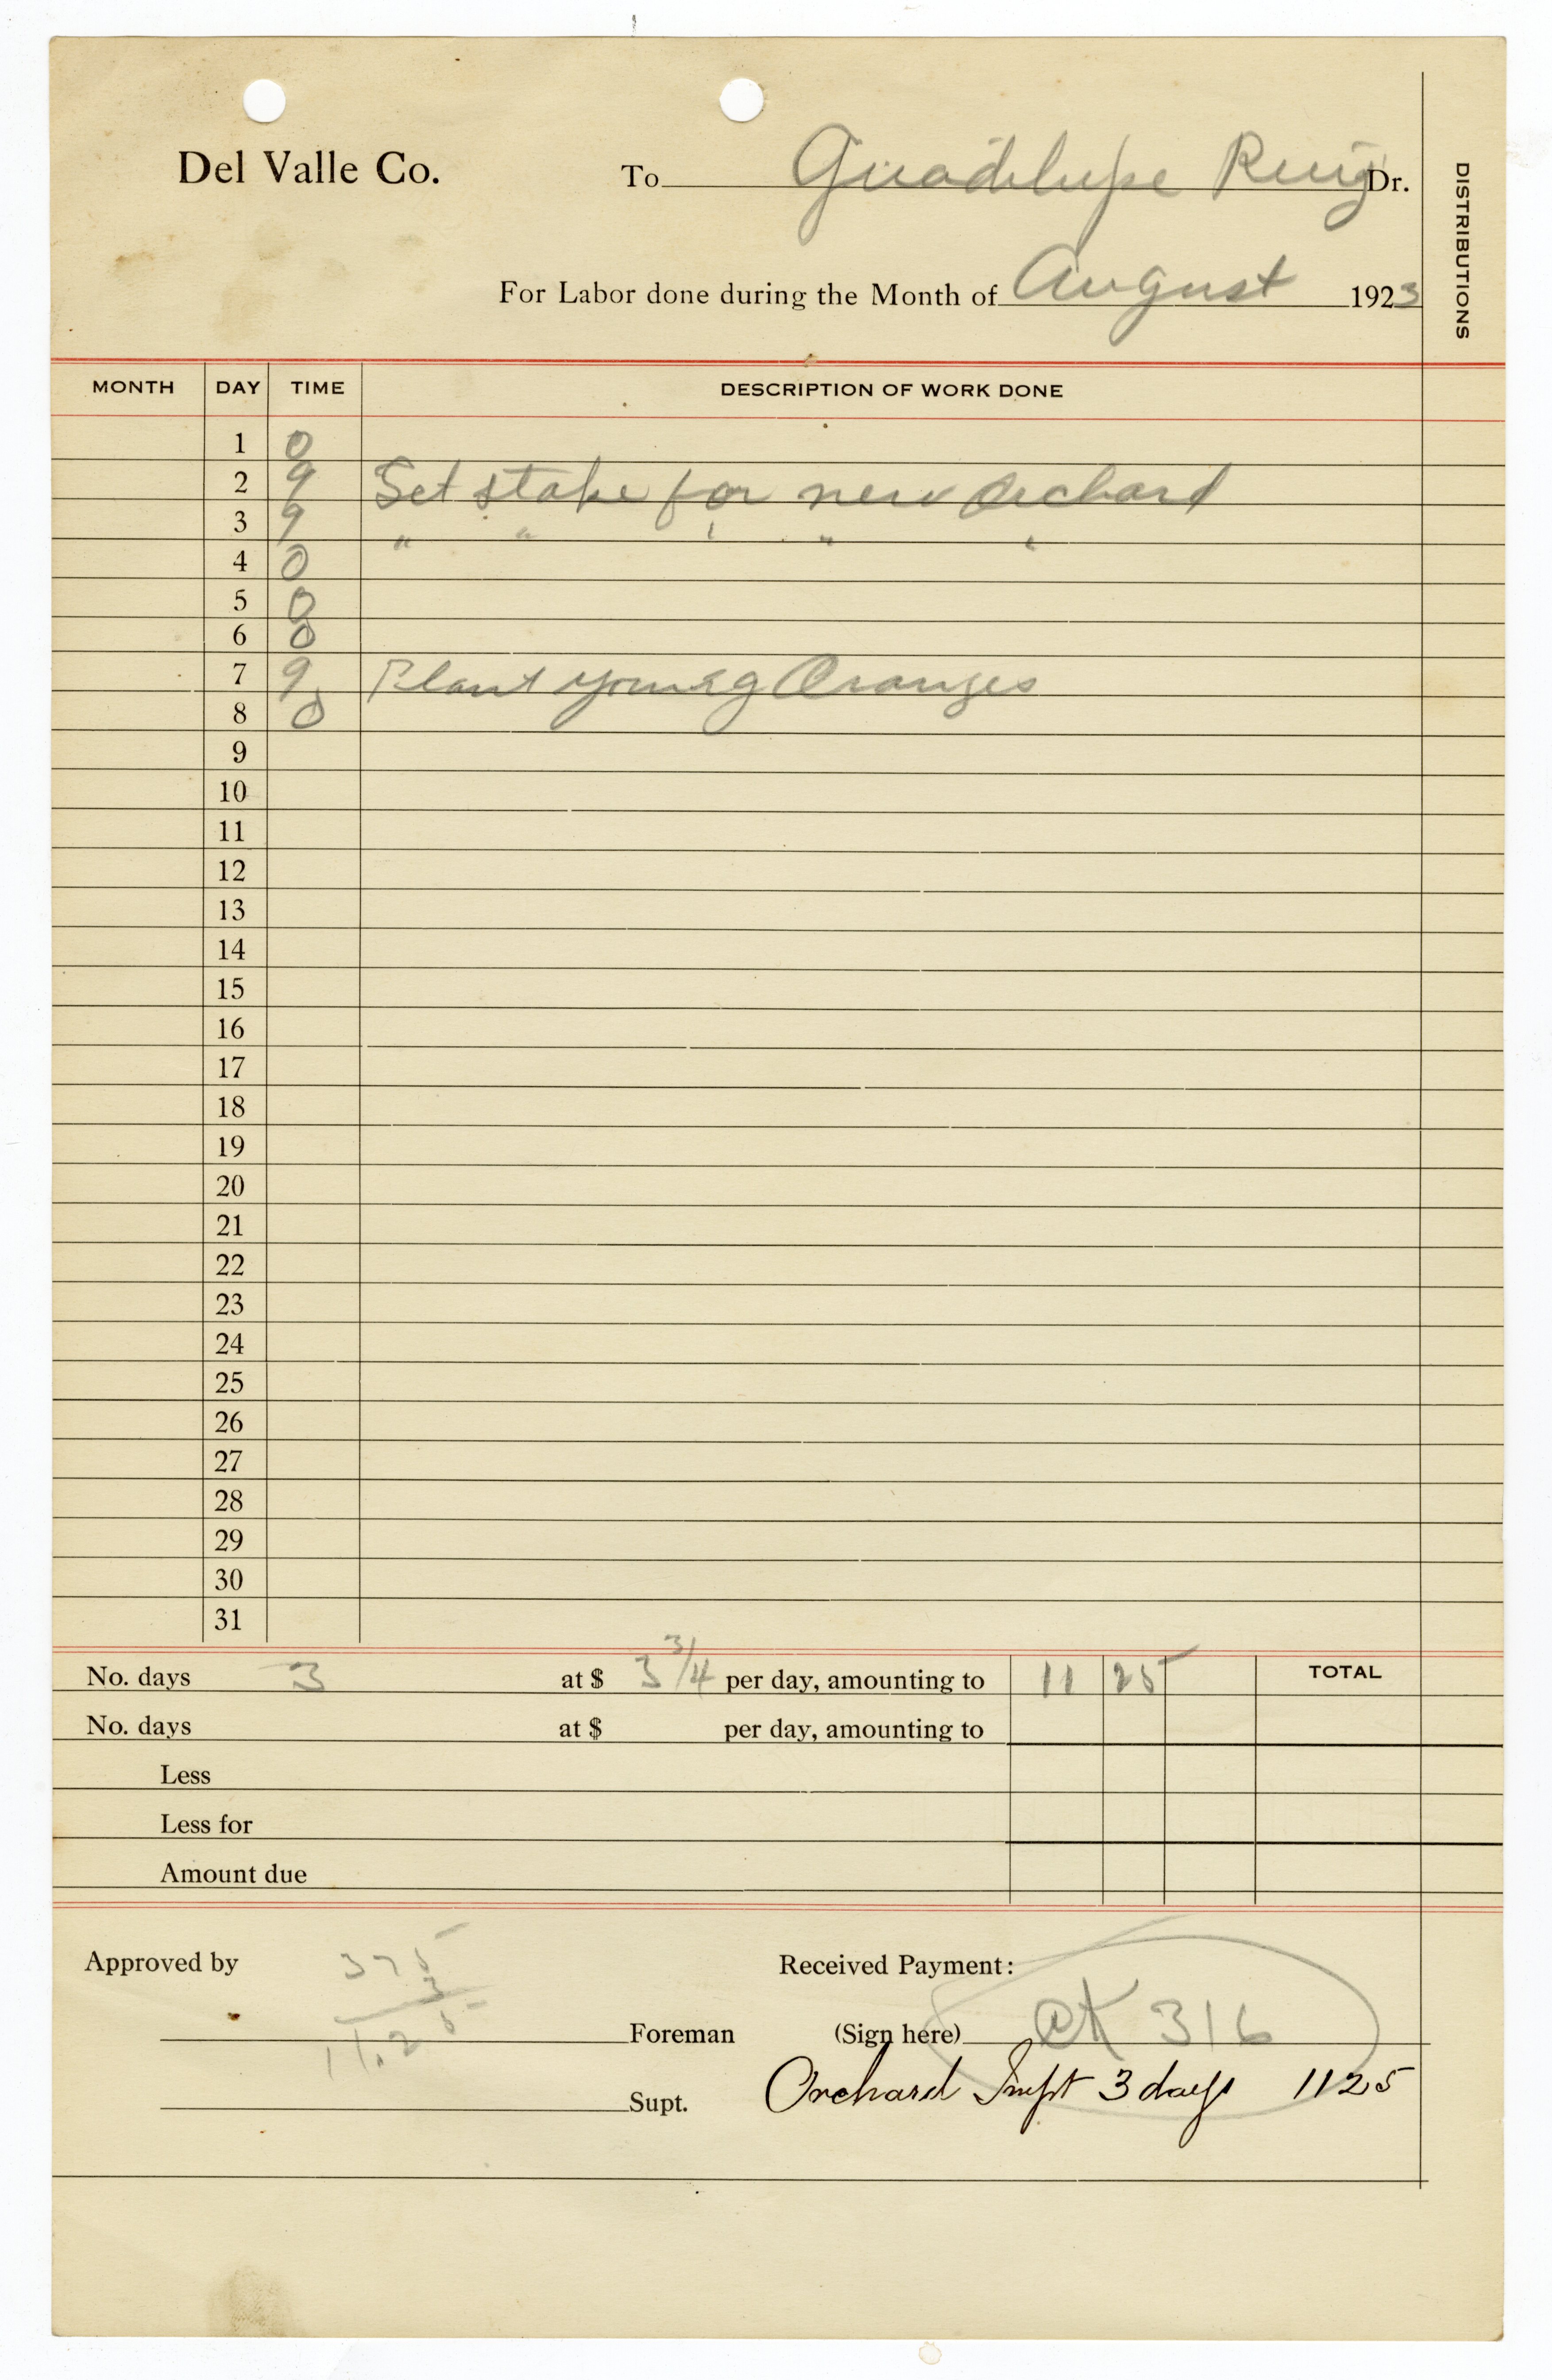 Del Valle Co. To Guadelupe Ruig Dr.
DISTRIBUTIONS
For Labor done during the Month of August 1923
MONTH DAY TIME DESCRIPTION OF WORK DONE
1 0
2 9 Set stake for new Orchard
3 9 " " " " "
4 0
5 0
6 0
7 9 Plant young Oranges
8 0
9
10
11
12
13
14
15
16
17
18
19
20
21
22
23
24
25
26
27
28
29
30
31
No. days 3 at $ 3 3/4 per day, amounting to 11 25 TOTAL
No. days at $ per day, amounting to
Less
Less for
Amount due
Approved by 375 Received Payment:
3
Foreman (Sign here) CK 316
11.25
Supt. Orchard Impt 3 days 1125